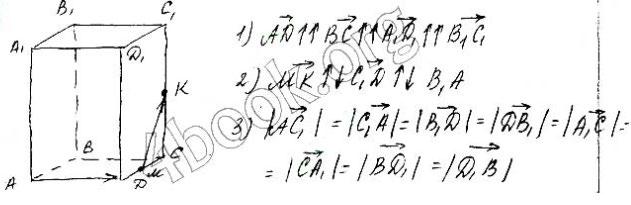 B₁
C₁
A₁
D₁
K
B
C
M
A
D
1) A͞D⃗ ↑↑ B͞C⃗ ↑↑ A₁D₁⃗ ↑↑ B₁C₁⃗
2) MK⃗ ↑↓ C₁D⃗ ↑↓ B₁A
3) |AC₁⃗| = |C₁A⃗| = |B₁D⃗| = |DB₁⃗| = |A₁C⃗| =
= |CA₁⃗| = |BD₁⃗| = |D₁B⃗|
4book.org